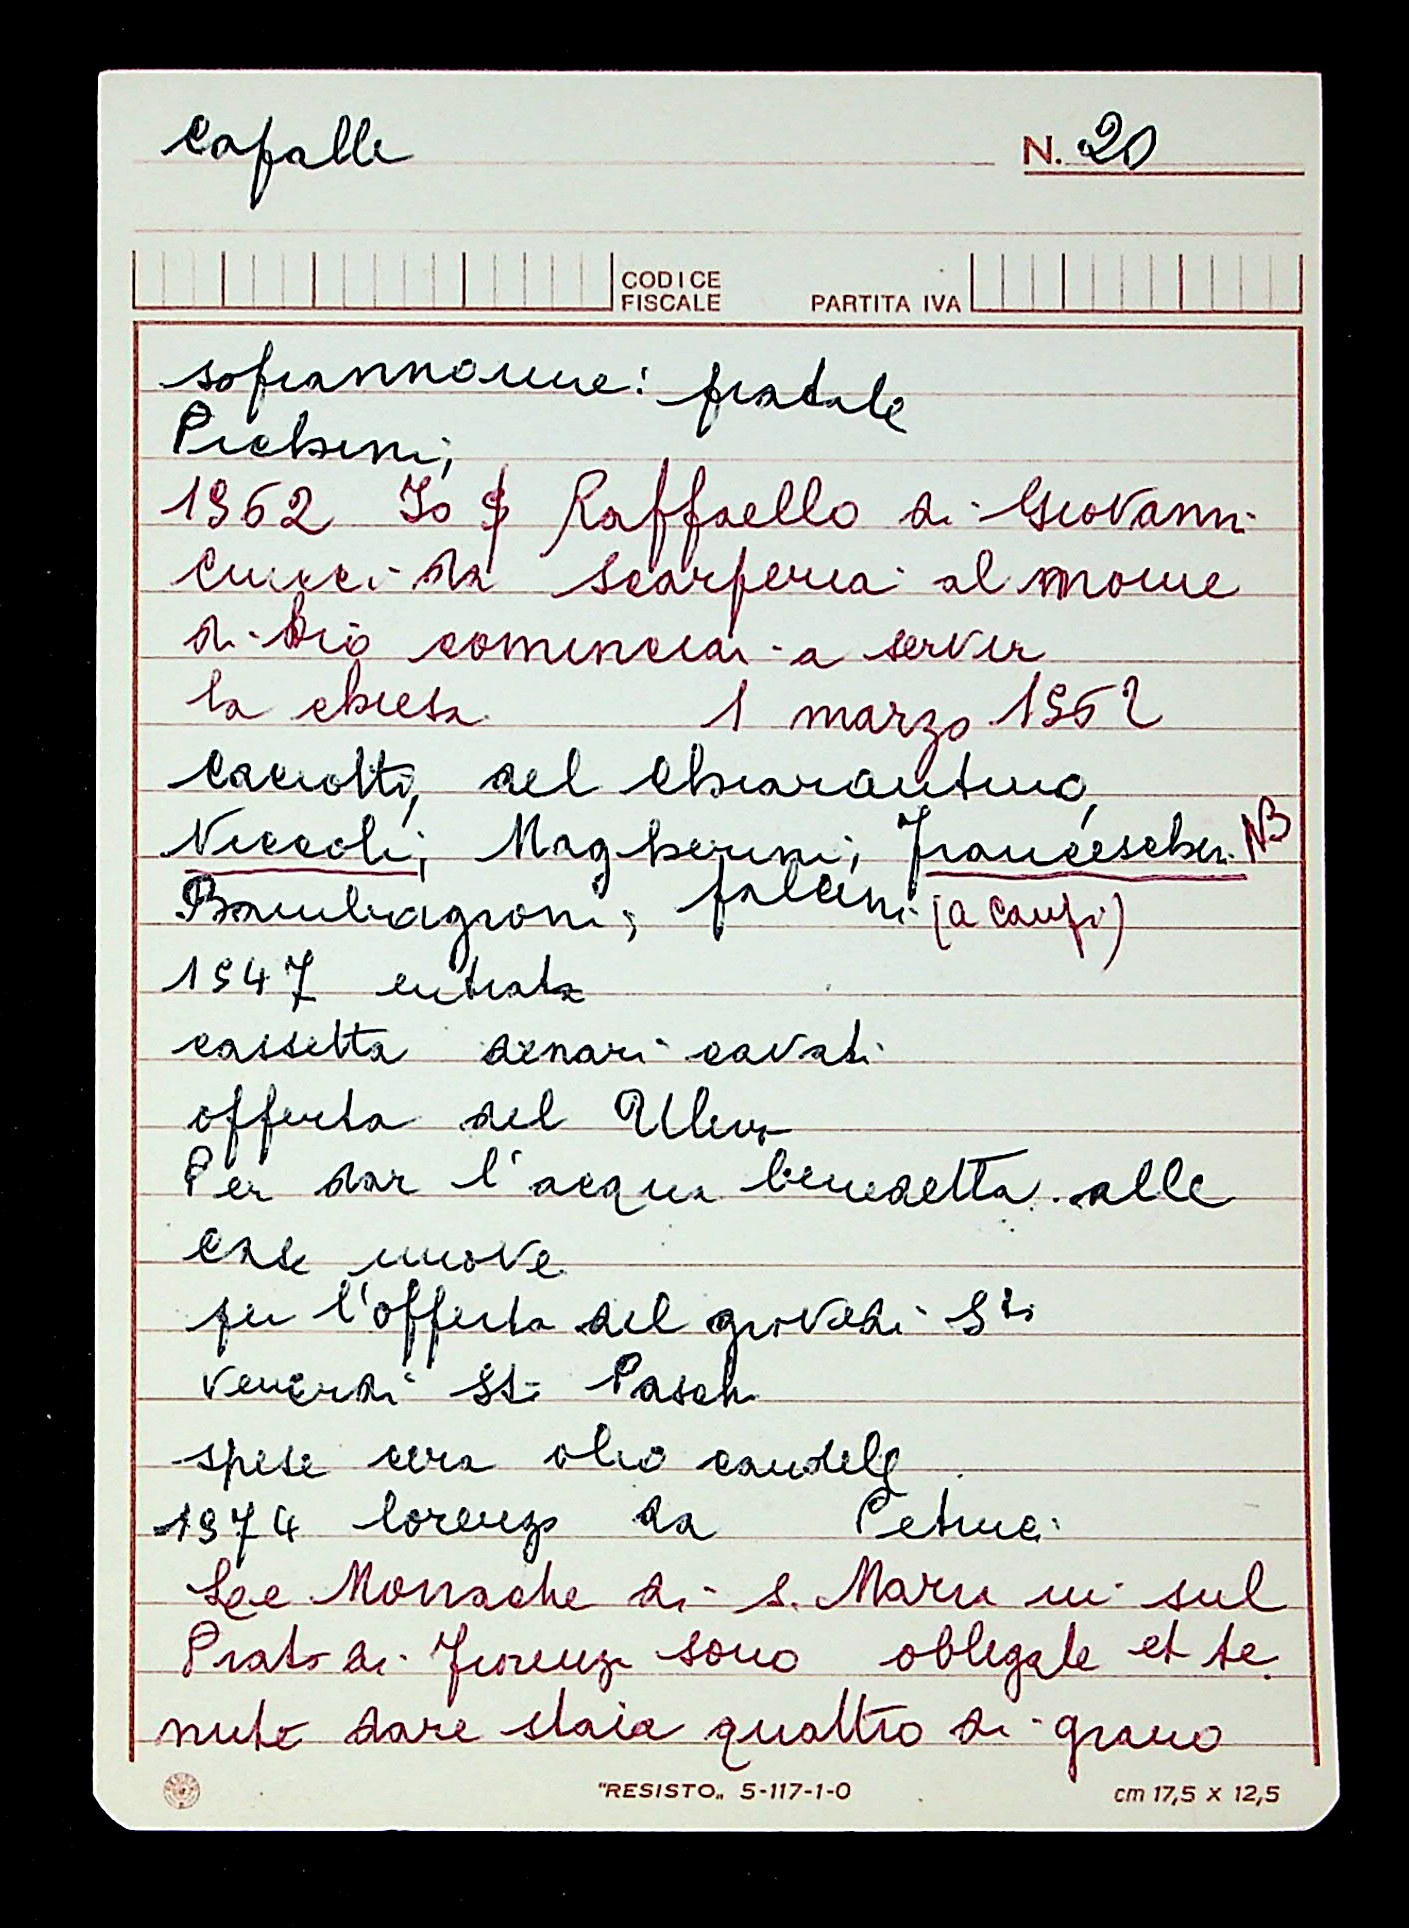 Capalle
N. 20
CODICE FISCALE PARTITA IVA
soprannome: pratale
Pichini;
1562 Io Raffaello di Giovanni
Cucci da Scarperia al nome
di Dio cominciai a servir
la chiesa 1 marzo 1562
Caciolti, del Chiarantino,
Niccoli; Magherini; Franceschi NB
Bambagioni; falcini (a Campi)
1547 entrata
cassetta denari cavati
offerta del Ulivo
Per dar l'acqua benedetta alle
case nuove
per l'offerta del giovedi Sto
venerdi St Pasch
spese cera olio candele
1574 lorenzo da Petruci
Lee Monache di S. Maria in sul
Prato di Fiorenza sono oblegate et te
nute dare staia quattro di grano
"RESISTO„ 5-117-1-0 cm 17,5 x 12,5